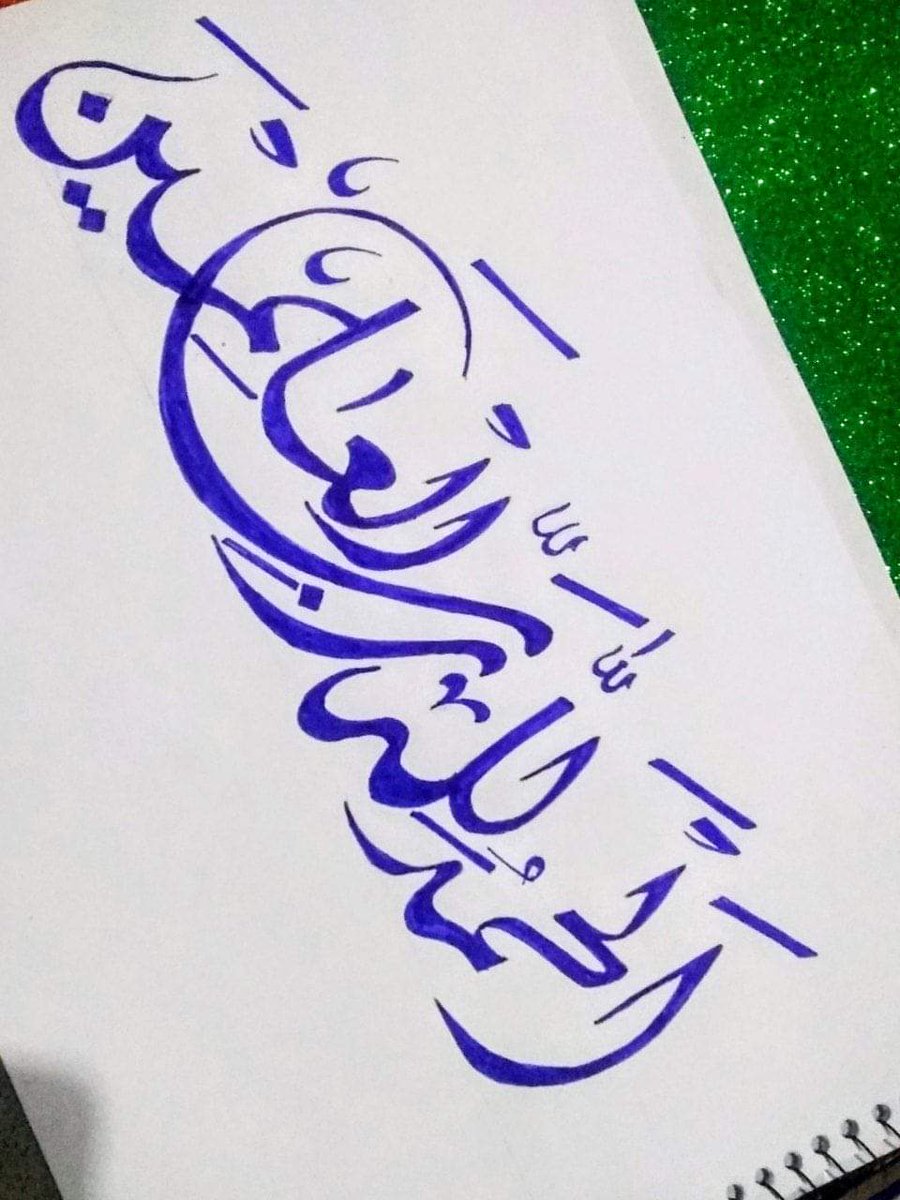 الحَمْدُ لِلَّهِ رَبِّ الْعَالَمِينَ